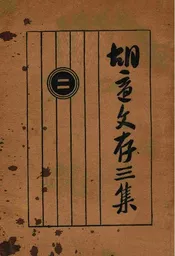 胡適文存三集
二